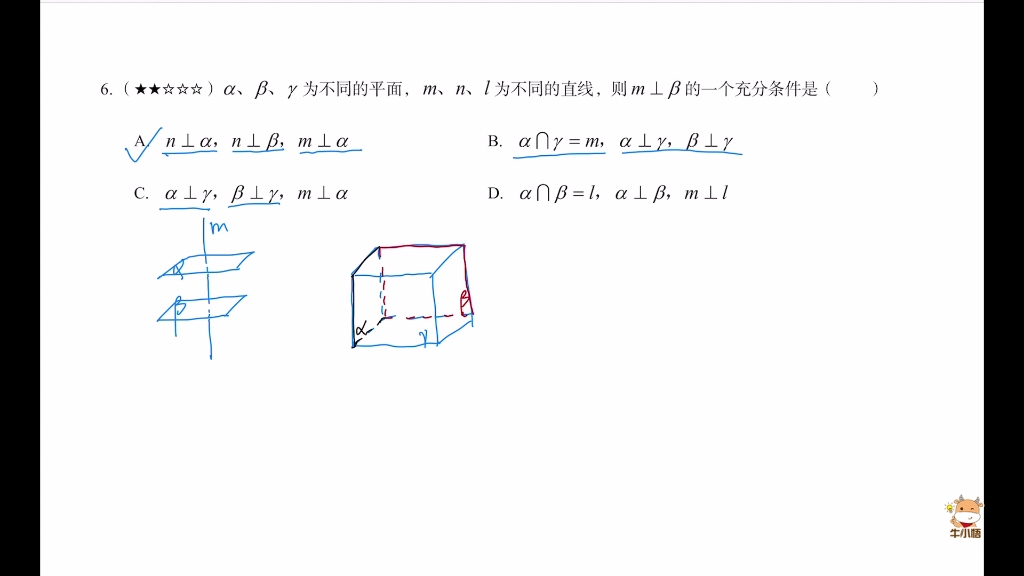 6.（★★☆☆☆）α、β、γ 为不同的平面，m、n、l 为不同的直线，则 m⊥β 的一个充分条件是（　　）
A. n⊥α，n⊥β，m⊥α
B. α⋂γ=m，α⊥γ，β⊥γ
C. α⊥γ，β⊥γ，m⊥α
D. α⋂β=l，α⊥β，m⊥l
m
α
β
β
α
γ
牛小悟